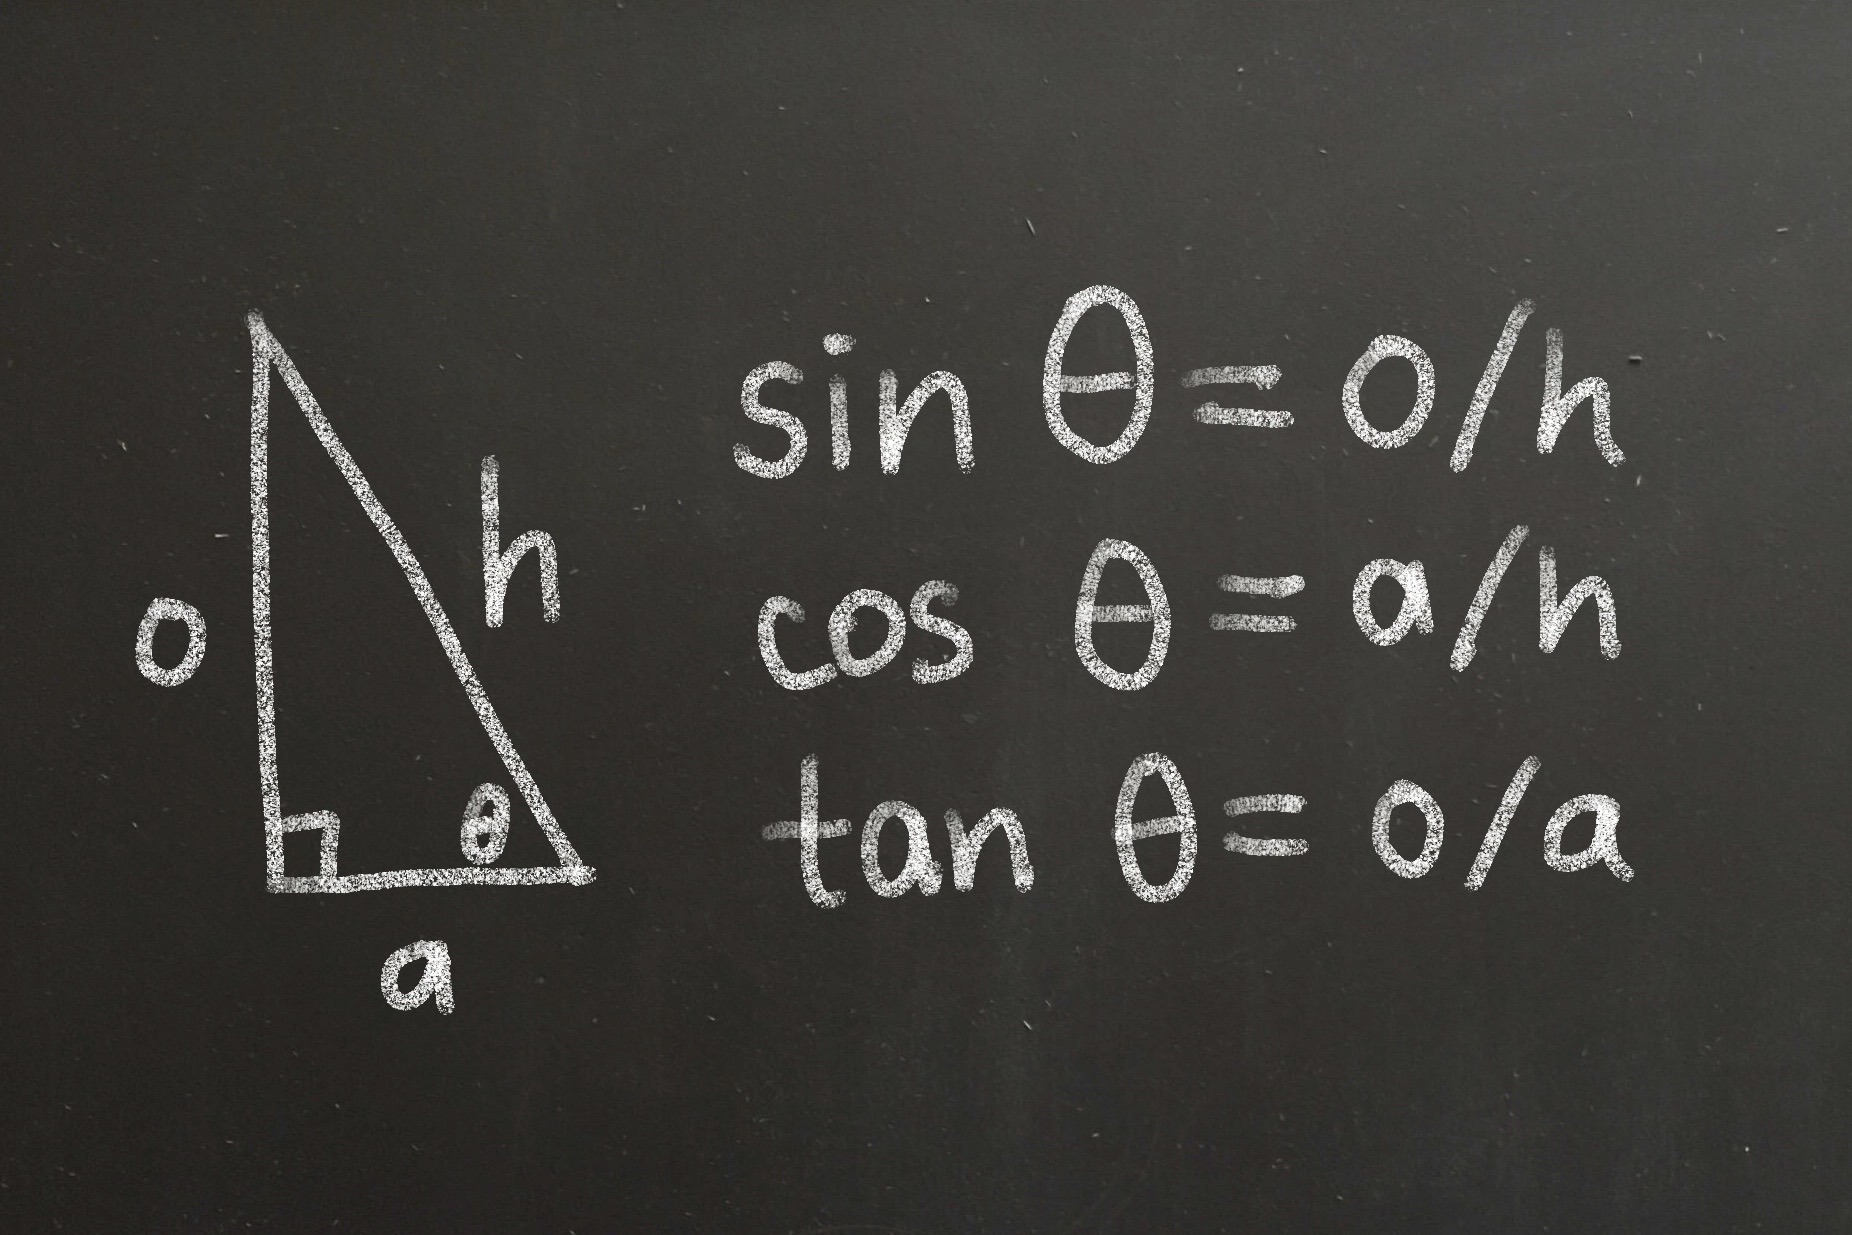 o
h
θ
a
sin θ = o/h
cos θ = a/h
tan θ = o/a